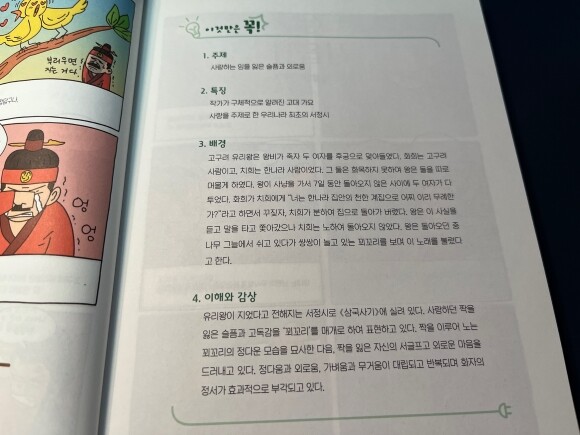 부러우면
지는 거다.
엉
엉
이것만은 꼭!
1. 주제
사랑하는 임을 잃은 슬픔과 외로움
2. 특징
작가가 구체적으로 알려진 고대 가요
사랑을 주제로 한 우리나라 최초의 서정시
3. 배경
고구려 유리왕은 왕비가 죽자 두 여자를 후궁으로 맞아들였다. 화희는 고구려
사람이고, 치희는 한나라 사람이었다. 그 둘은 화목하지 못하여 왕은 둘을 따로
머물게 하였다. 왕이 사냥을 가서 7일 동안 돌아오지 않은 사이에 두 여자가 다
투었다. 화희가 치희에게 "너는 한나라 집안의 천한 계집으로 어찌 이리 무례한
가?"라고 하면서 꾸짖자, 치희가 분하여 집으로 돌아가 버렸다. 왕은 이 사실을
듣고 말을 타고 쫓아갔으나 치희는 노하여 돌아오지 않았다. 왕은 돌아오던 중
나무 그늘에서 쉬고 있다가 쌍쌍이 놀고 있는 꾀꼬리를 보며 이 노래를 불렀다
고 한다.
4. 이해와 감상
유리왕이 지었다고 전해지는 서정시로 《삼국사기》에 실려 있다. 사랑하던 짝을
잃은 슬픔과 고독감을 '꾀꼬리'를 매개로 하여 표현하고 있다. 짝을 이루어 노는
꾀꼬리의 정다운 모습을 묘사한 다음, 짝을 잃은 자신의 서글프고 외로운 마음을
드러내고 있다. 정다움과 외로움, 가벼움과 무거움이 대립되고 반복되며 화자의
정서가 효과적으로 부각되고 있다.